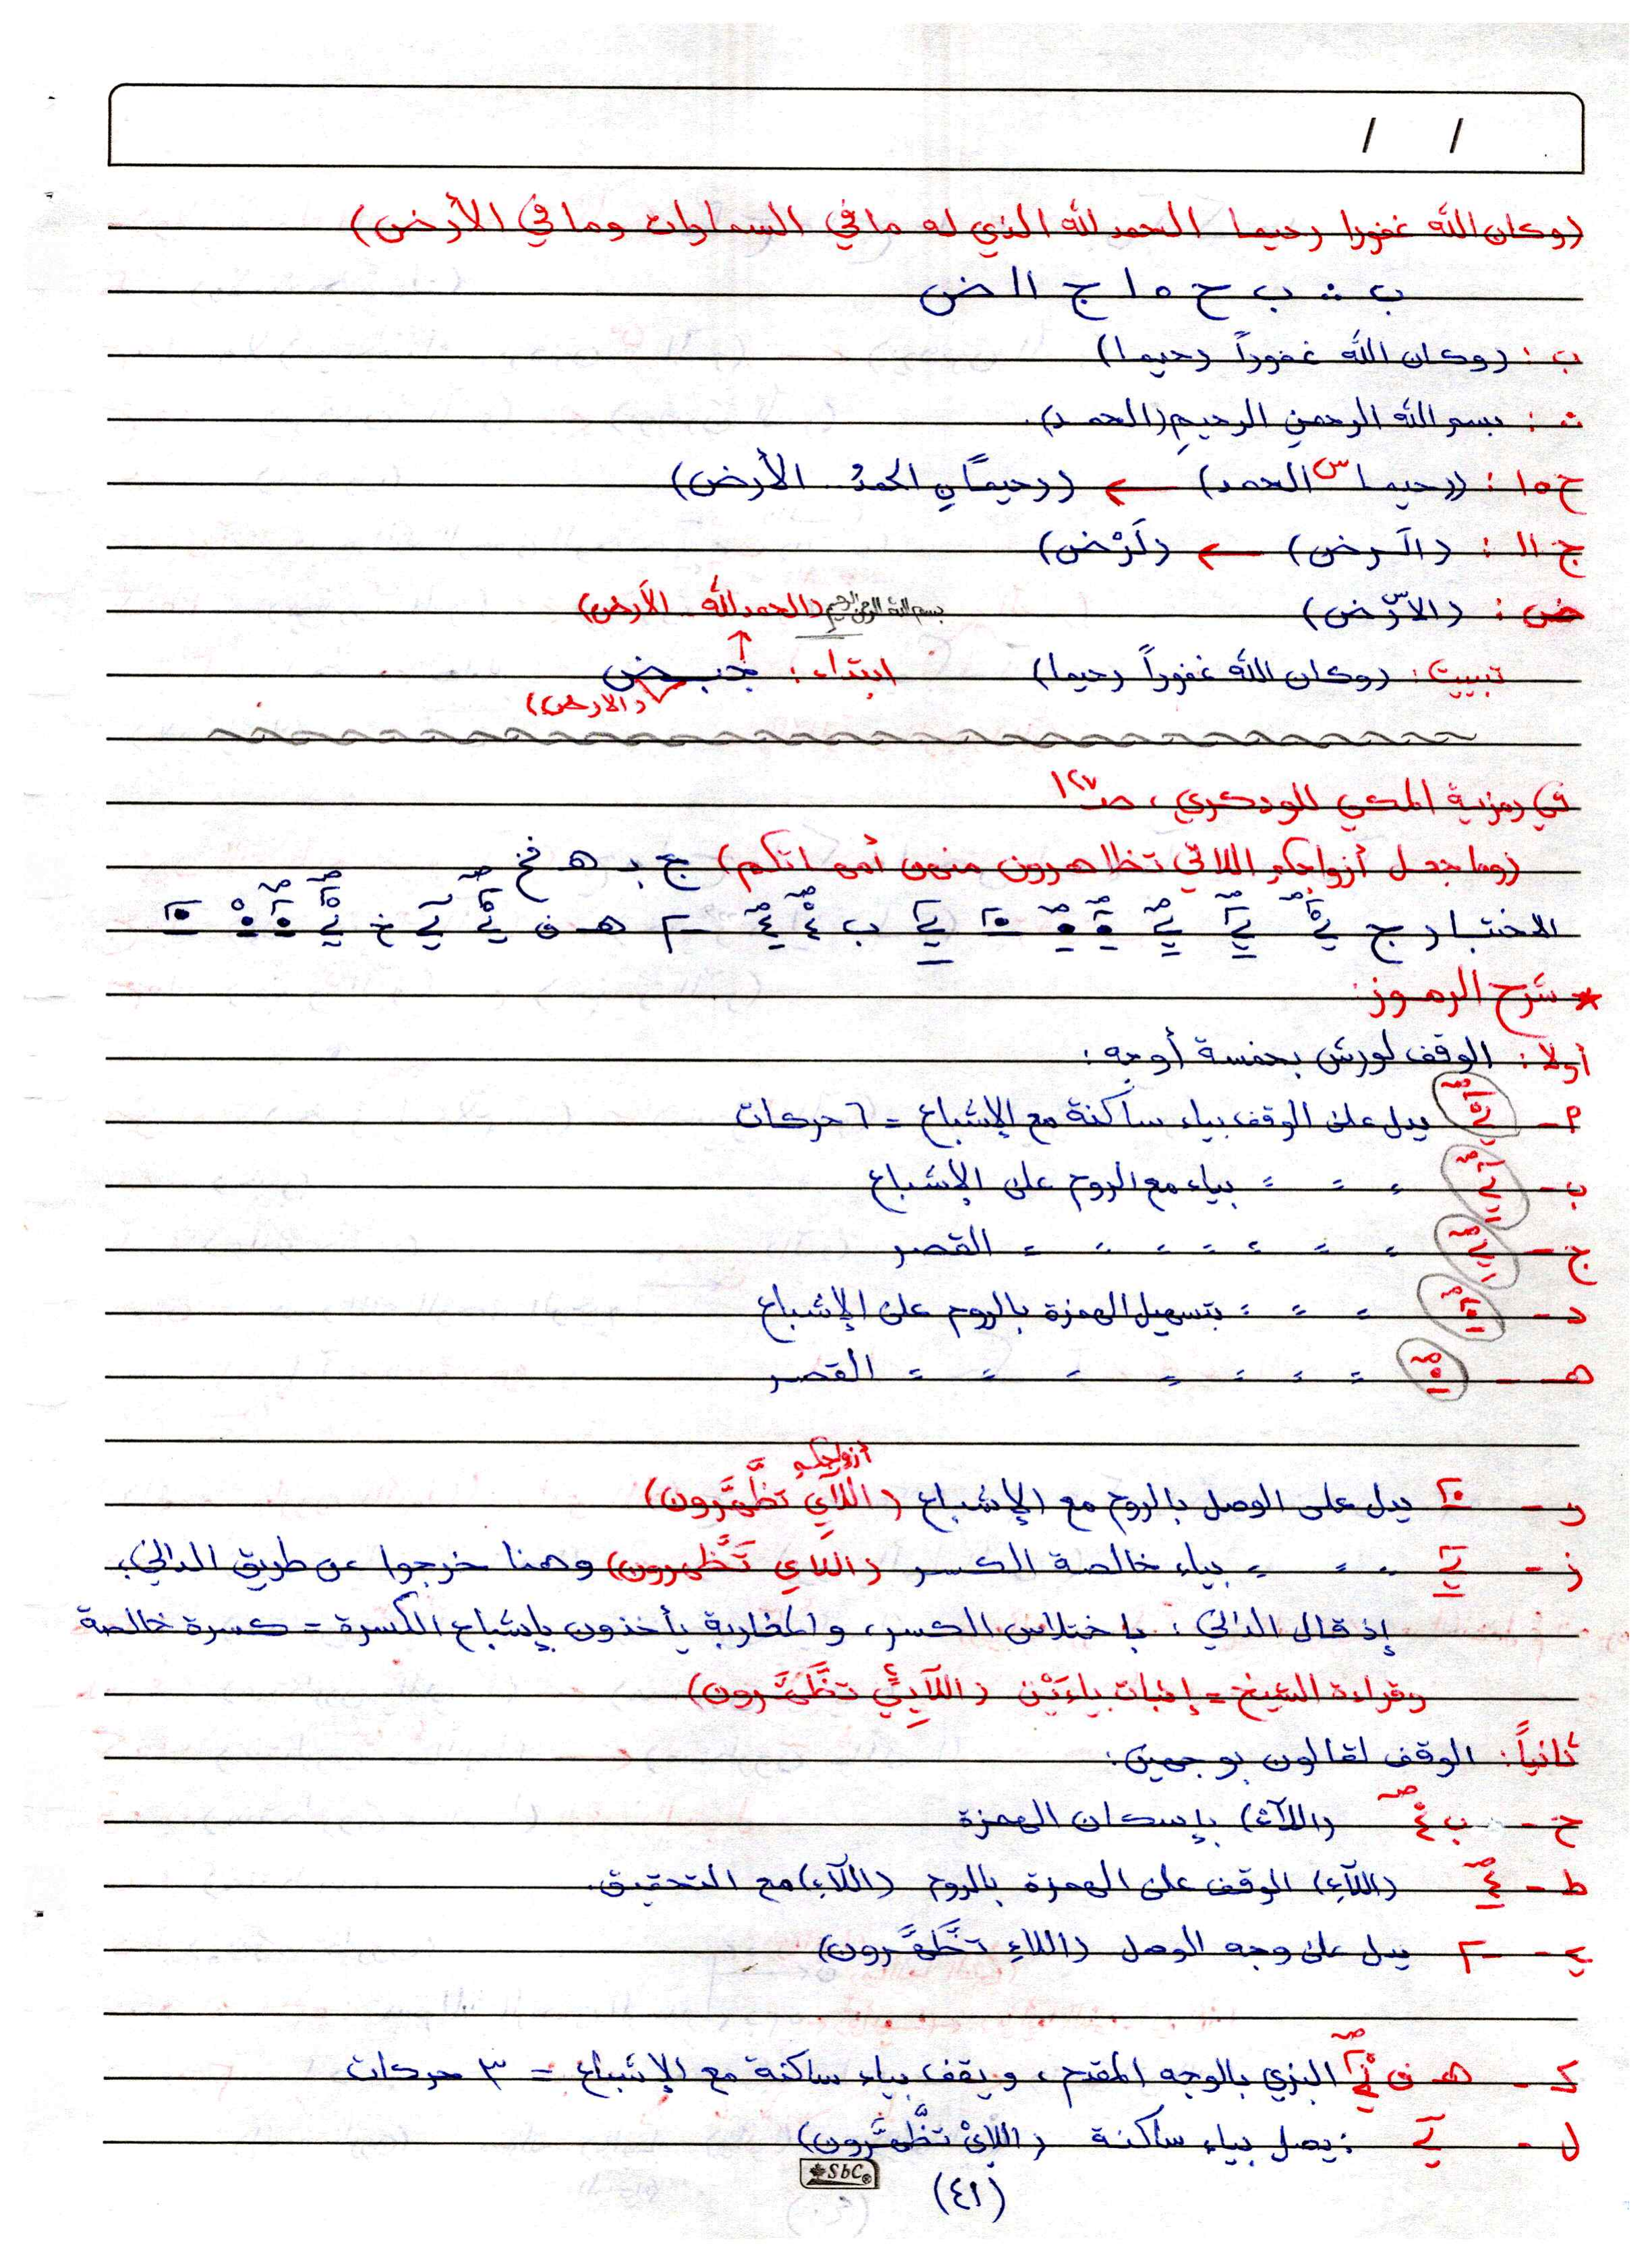 / /
(وكان الله غفورا رحيما الحمد لله الذي له ما في السماوات وما في الأرض)
ب ث ب ح ه ا ج اا ض
ب : (وكان الله غفوراً رحيما)
ث : بسم الله الرحمن الرحيم (الحمد).
ح ه ا : (رحيما س الحمد) ← (رحيماً الحمدُ .. الأرض)
ج اا : (الَرض) ← (لَرْض)
ض : (الاَرْض) بسم الله الرحمن الرحيم (الحمد لله .. الأرض)
تبييت : (وكان الله غفوراً رحيما) ابتداء :
(الارض)
في رمزية المكي للودكري، صـ ١٢٧
(وما جعل أزواجكم اللائي تظاهرون منهن أمهاتكم) ج بـ هـ
الاختبار ج
* شرح الرموز:
أولا : الوقف لورش بخمسة أوجه :
٢ - يدل على الوقف بياء ساكنة مع الإشباع = ٦ حركات
ب - = = = بياء مع الروم على الإشباع
ج - = = = = = = = القصر
د - = = = بتسهيل الهمزة بالروم على الإشباع
هـ - = = = = = = = القصر
أزواجكم
و - يدل على الوصل بالروم مع الإشباع (اللَّآيِ تظَّهَّرون)
ز - = = = بياء خالصة الكسر (اللاي تَظَّهرون) وهنا خرجوا عن طريق الداني،
إذ قال الداني : باختلاس الكسر، والمغاربة يأخذون بإشباع الكسرة = كسرة خالصة
وقراءة الشيخ = إثبات ياءَيْن (اللآيِيْ تظَّهَّرون)
ثانياً : الوقف لقالون بوجهين :
ح - ب (اللآءْ) بإسكان الهمزة
ط - (اللآءِ) الوقف على الهمزة بالروم (اللآءِ) مع التحقيق.
ي - يدل على وجه الوصل (اللاءِ تظَّهَّرون)
ك - هـ البزي بالوجه المقدم، ويقف بياء ساكنة مع الإشباع = ٣ حركات
ل - : يصل بياء ساكنة (اللايْ تظَّهَّرون)
SbC®
(٤١)